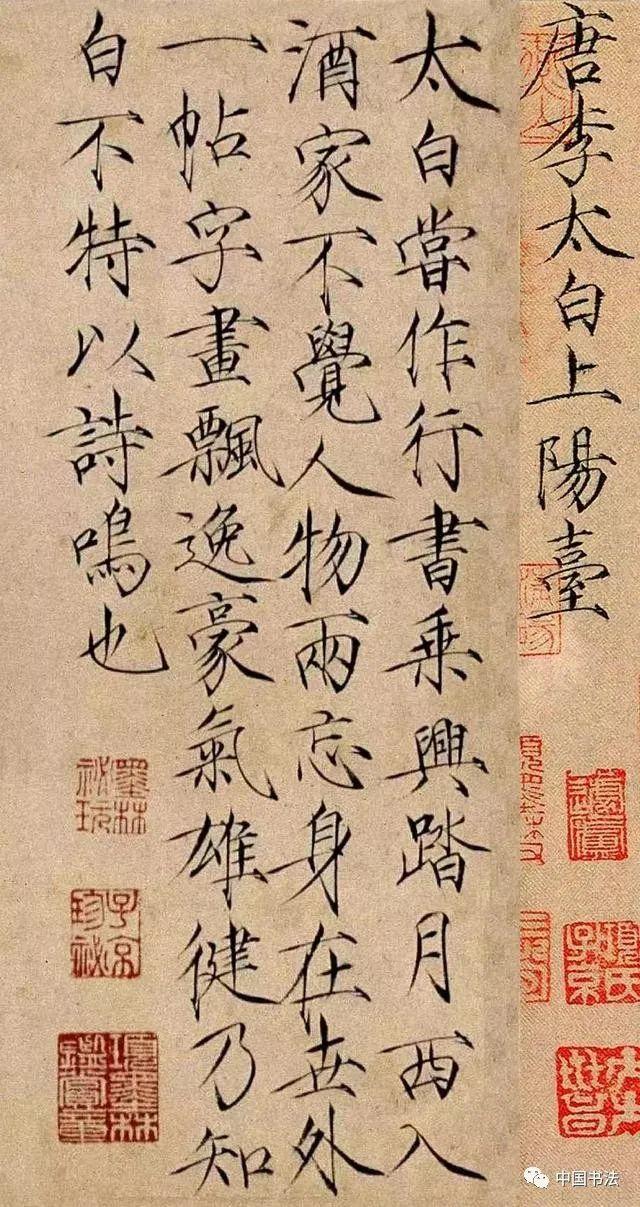 唐李太白上陽臺
太白嘗作行書乗興踏月西入
酒家不覺人物兩忘身在世外
一帖字畫飄逸豪氣雄健乃知
白不特以詩鳴也
墨林
祕玩
子京
珍祕
項墨林
鑑賞章
項氏
子京
中国书法